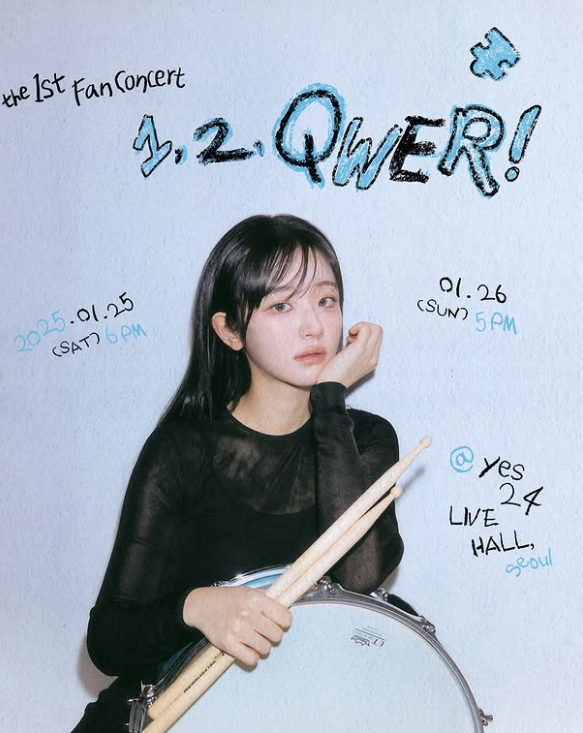 the 1st Fan Concert
1, 2, QWER!
2025.01.25
(SAT) 6PM
01.26
(SUN) 5PM
@ yes
24
LIVE
HALL,
seoul